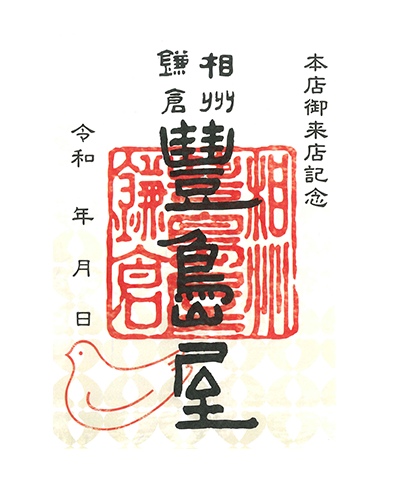 本店御来店記念
相州
鎌倉
豊島屋
令和　年　月　日
相州
豊島屋
鎌倉